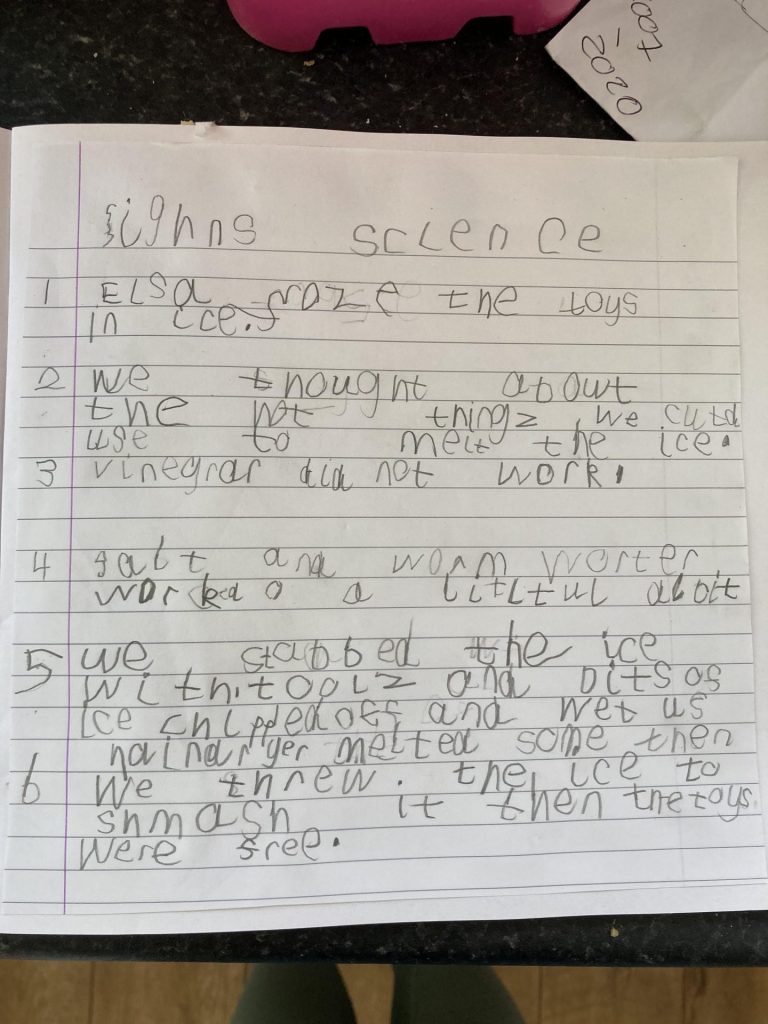 0202
sighns science
1 ELSa froze the toys
in ice.
2 we thought about
the hot thingz we cutd
use to melt the ice.
3 vinegrar did not work.
4 salt and worm worter
worked a litltul aboit
5 we stabbed the ice
with toolz and bits of
ice chippedoff and wet us
melted some then
6 we threw the ice to
shmash it then thetoys
were free.